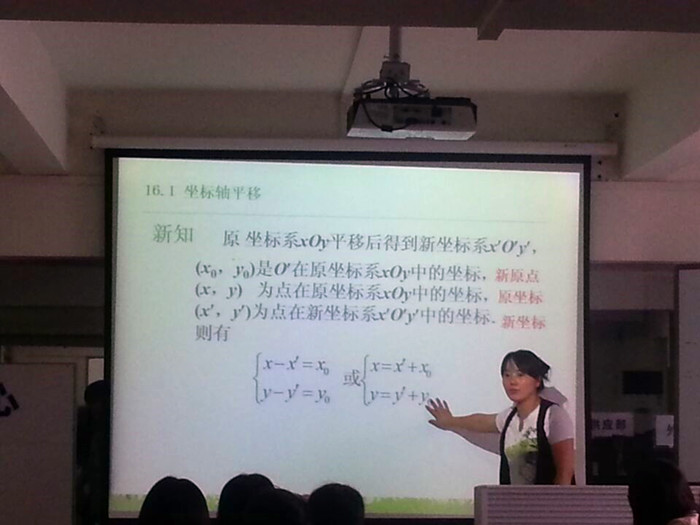 16.1 坐标轴平移
新知 原 坐标系xOy平移后得到新坐标系x'O'y',
(x₀, y₀)是O'在原坐标系xOy中的坐标, 新原点
(x, y) 为点在原坐标系xOy中的坐标, 原坐标
(x', y')为点在新坐标系x'O'y'中的坐标. 新坐标
则有
{x−x'=x₀ 或 {x=x'+x₀
{y−y'=y₀ {y=y'+y₀
心
供应部